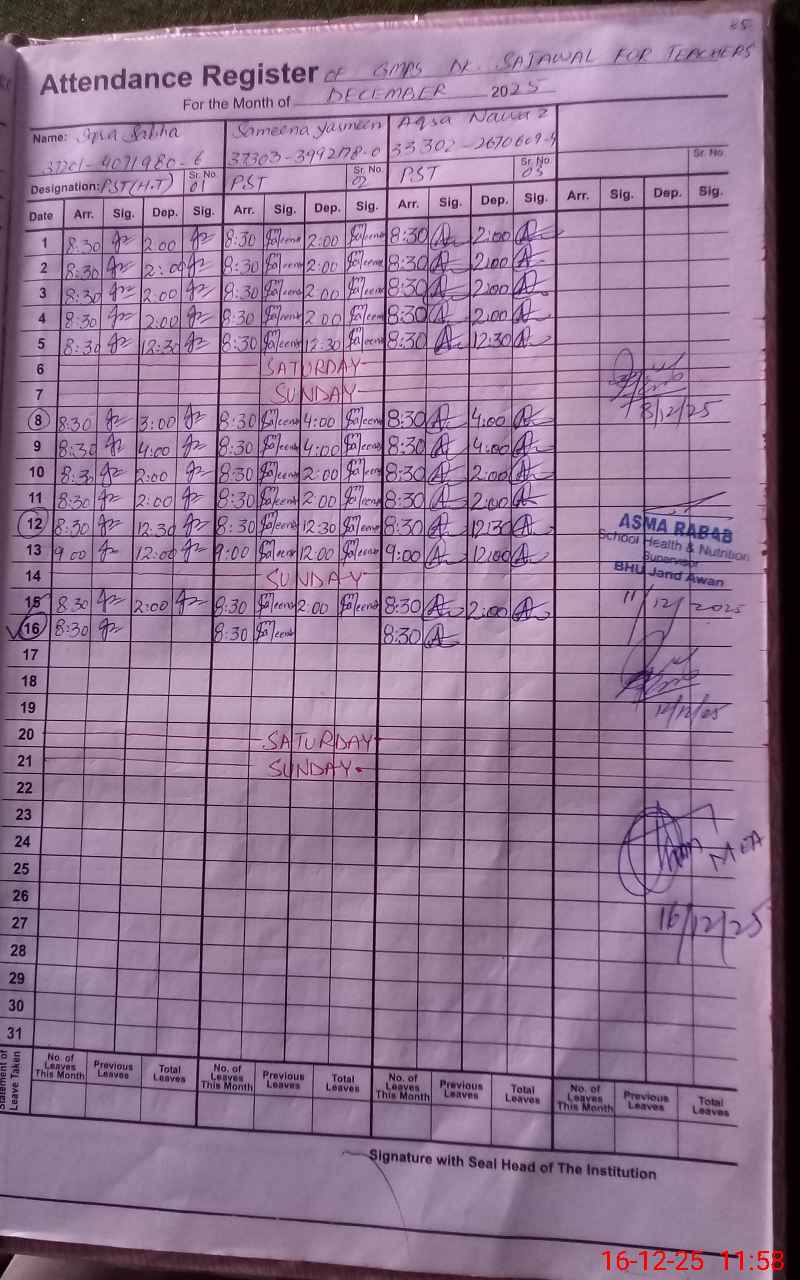 45
Attendance Register OF GMPS DK. SAJAWAL FOR TEACHERS
For the Month of DECEMBER 2025
Name: Iqra Sabiha Sameena Yasmeen Aqsa Nawaz
37201-4071980-6 37303-3992178-0 33302-2670609-4 Sr. No.
Designation: PST(H.T) Sr. No. 01 PST Sr. No. 02 PST Sr. No. 03
Date Arr. Sig. Dep. Sig. Arr. Sig. Dep. Sig. Arr. Sig. Dep. Sig. Arr. Sig. Dep. Sig.
1 8:30 2:00 8:30 2:00 8:30 2:00
2 8:30 2:00 8:30 2:00 8:30 2:00
3 8:30 2:00 8:30 2:00 8:30 2:00
4 8:30 2:00 8:30 2:00 8:30 2:00
5 8:30 12:30 8:30 12:30 8:30 12:30
6 SATURDAY
7 SUNDAY
8 8:30 3:00 8:30 4:00 8:30 4:00 8/12/25
9 8:30 4:00 8:30 4:00 8:30 4:00
10 8:30 2:00 8:30 2:00 8:30 2:00
11 8:30 2:00 8:30 2:00 8:30 2:00
12 8:30 12:30 8:30 12:30 8:30 12:30
ASMA RABAB
School Health & Nutrition
Supervisor
BHU Jand Awan
13 9:00 12:00 9:00 12:00 9:00 12:00
14 SUNDAY
15 8:30 2:00 8:30 2:00 8:30 2:00 11/12/2025
16 8:30 8:30 8:30
17
18
19 12/12/25
20 SATURDAY
21 SUNDAY
22
23
24 MEA
25
26
27 16/12/25
28
29
30
31
Statement of Leave Taken
No. of Leaves This Month Previous Leaves Total Leaves No. of Leaves This Month Previous Leaves Total Leaves No. of Leaves This Month Previous Leaves Total Leaves No. of Leaves This Month Previous Leaves Total Leaves
Signature with Seal Head of The Institution
16-12-25 11:58